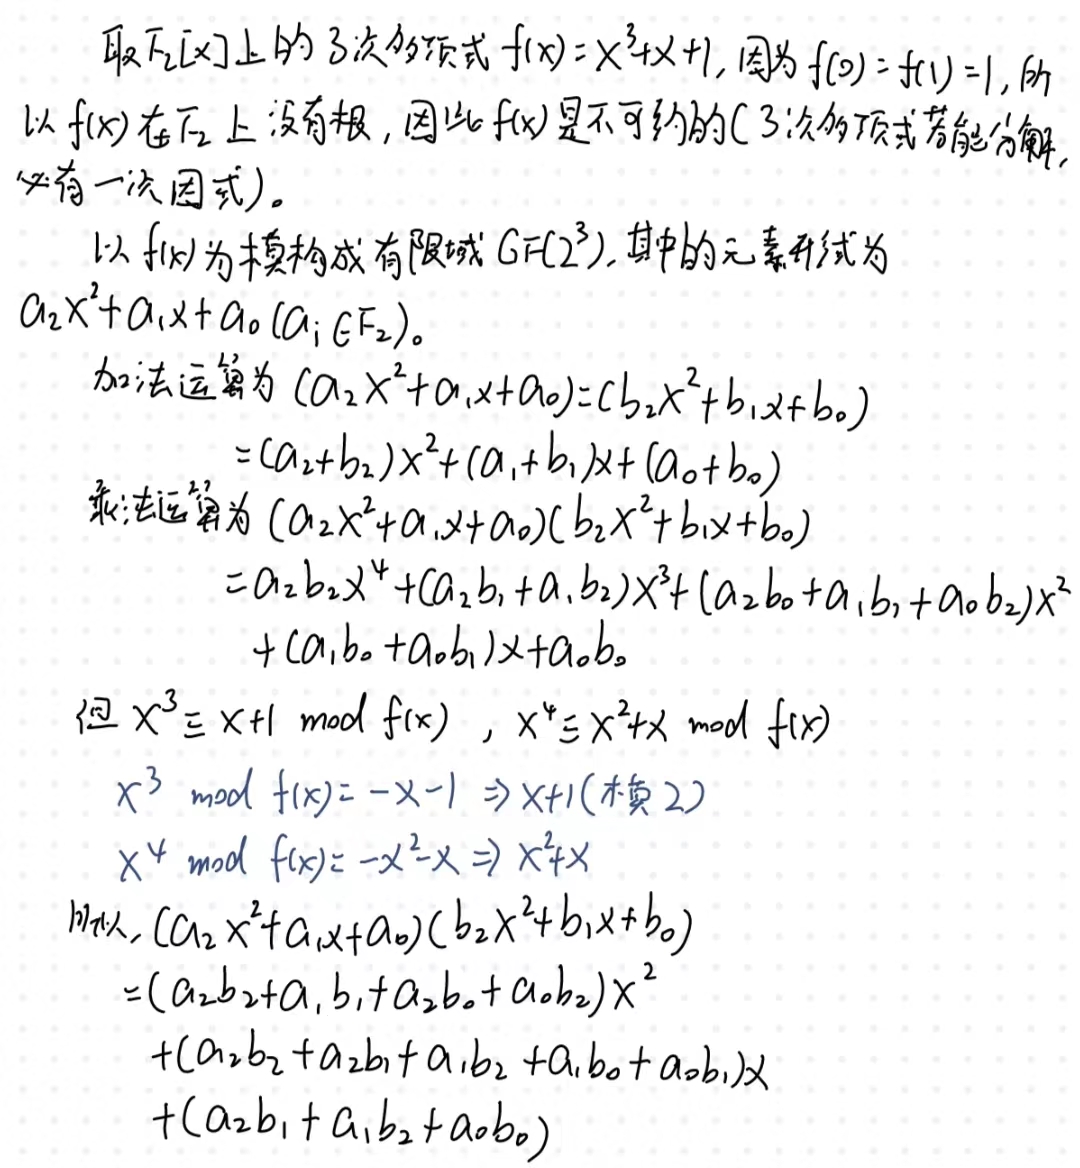 取F₂[x]上的3次多项式 f(x)=x³+x+1, 因为 f(0)=f(1)=1, 所
以 f(x) 在 F₂ 上没有根, 因此 f(x) 是不可约的(3次多项式若能分解,
必有一次因式)。
以 f(x) 为模构成有限域 GF(2³), 其中的元素形式为
a₂x²+a₁x+a₀ (aᵢ∈F₂)。
加法运算为 (a₂x²+a₁x+a₀)=(b₂x²+b₁x+b₀)
=(a₂+b₂)x²+(a₁+b₁)x+(a₀+b₀)
乘法运算为 (a₂x²+a₁x+a₀)(b₂x²+b₁x+b₀)
=a₂b₂x⁴+(a₂b₁+a₁b₂)x³+(a₂b₀+a₁b₁+a₀b₂)x²
+(a₁b₀+a₀b₁)x+a₀b₀
但 x³≡x+1 mod f(x) , x⁴≡x²+x mod f(x)
x³ mod f(x)=-x-1 ⇒ x+1(模2)
x⁴ mod f(x)=-x²-x ⇒ x²+x
所以, (a₂x²+a₁x+a₀)(b₂x²+b₁x+b₀)
=(a₂b₂+a₁b₁+a₂b₀+a₀b₂)x²
+(a₂b₂+a₂b₁+a₁b₂+a₁b₀+a₀b₁)x
+(a₂b₁+a₁b₂+a₀b₀)